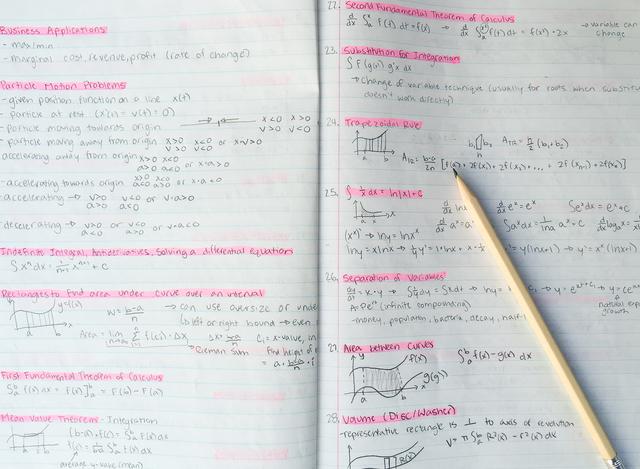 Business Applications
- max/min
- marginal cost, revenue, profit (rate of change)
Particle Motion Problems
- given position function on a line x(t)
- particle at rest (x'(t) = v(t) = 0)
- particle moving towards origin x<0 x>0
v>0 v<0
- particle moving away from origin x>0 x<0 or x·v>0
v>0 v<0
- accelerating away from origin x>0 x<0
a>0 a<0 or x·a>0
- accelerating towards origin x>0 x<0
a<0 a>0 or x·a<0
- accelerating → v>0 or v<0 or v·a>0
a>0 a<0
- decelerating → v>0 or v<0 or v·a<0
a<0 a>0
Indefinite Integral, Antiderivatives, Solving a differential equations
∫xⁿ dx = 1/(n+1) xⁿ⁺¹ + c
Rectangles to find area under curve over an interval
y=f(x) w = (b-a)/n → can use oversize or unde
→ left or right bound → even
Area = lim n→∞ Σ f(ci)·Δx Δx = (b-a)/n ci = x-value, in
→ Rieman Sum Find height of
First Fundamental Theorem of Calculus
∫ₐᵇ f(x) dx = F(x)]ₐᵇ = F(b) - F(a)
Mean Value Theorem - Integration
(b-a)·f(c) = ∫ₐᵇ f(x) dx
average y-value (mean)
22. Second Fundamental Theorem of Calculus
→ variable can
change
23. Substitution for Integration
∫ f(g(x)) g'x dx
→ change of variable technique (usually for roots when substitu
doesn't work directly)
24. Trapezoidal Rule
b₁ b₂ h
a b x
25. ∫ 1/x dx = ln|x| + c
d/dx eˣ = eˣ ∫eˣdx = eˣ + c
∫aˣdx = 1/lna aˣ + c
26. Separation of Variables
(infinite compounding)
natural exp
growth
- money, population, bacteria, decay, half-l
27. Area between Curves
y f(x) ∫ₐᵇ f(x) - g(x) dx
g(x)
28. Volume (Disc/Washer)
- representative rectangle is ⊥ to axis of revolution
V = π∫ₐᵇ R²(x) - r²(x) dx